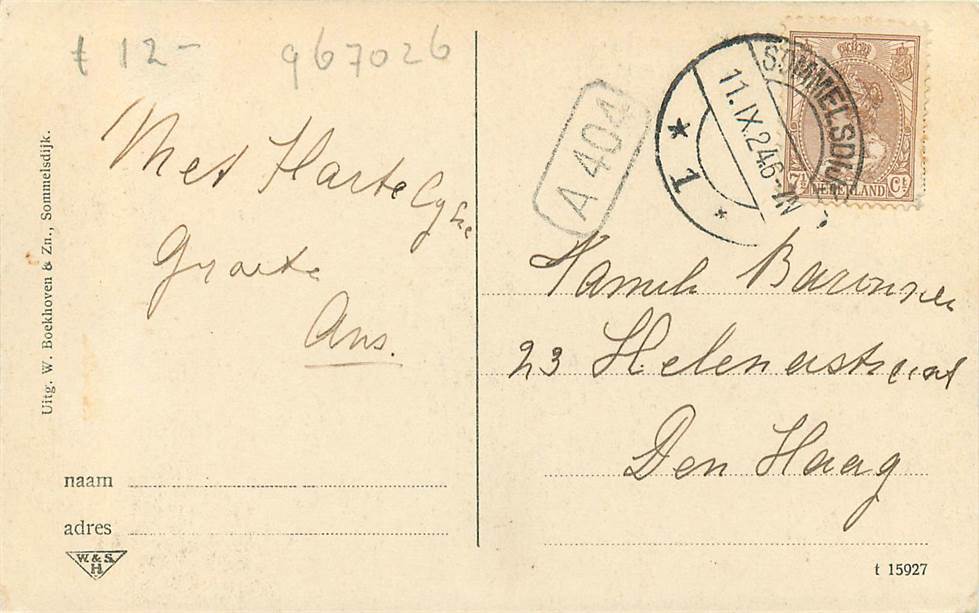 t 12- 967026
Met Hartelyke
Groete
Ans.
Uitg. W. Boekhoven & Zn., Sommelsdijk.
naam
adres
W. & S.
H
A 404
SOMMELSDIJK
11.IX.24.6-7N
1
7½ NEDERLAND Ct
Familie Baronner
23 Helenastraat
Den Haag
t 15927